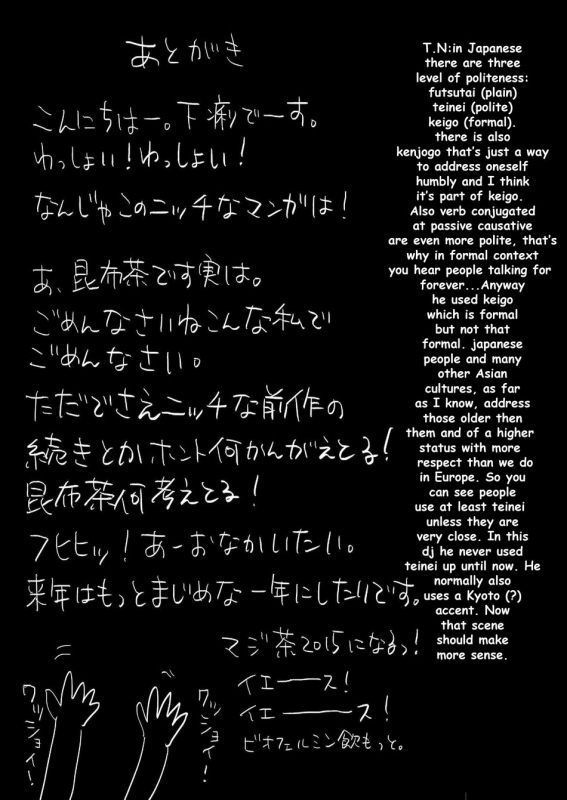 あとがき
こんにちはー。下痢でーす。
わっしょい！わっしょい！
なんじゃこのニッチなマンガは！
あ、昆布茶です実は。
ごめんなさいねこんな私で
ごめんなさい。
ただでさえニッチな前作の
続きとかホント何かんがえてる！
昆布茶何考えてる！
フヒヒッ！あーおなかいたい。
来年はもっとまじめな一年にしたいです。
マジ茶2015になるっ！
イエーース！
イエーーース！
ビオフェルミン飲もっと。
ワッショイ！
ワッショイ！
T.N:in Japanese
there are three
level of politeness:
futsutai (plain)
teinei (polite)
keigo (formal).
there is also
kenjogo that's just a way
to address oneself
humbly and I think
it's part of keigo.
Also verb conjugated
at passive causative
are even more polite, that's
why in formal context
you hear people talking for
forever...Anyway
he used keigo
which is formal
but not that
formal. japanese
people and many
other Asian
cultures, as far
as I know, address
those older then
them and of a higher
status with more
respect than we do
in Europe. So you
can see people
use at least teinei
unless they are
very close. In this
dj he never used
teinei up until now. He
normally also
uses a Kyoto (?)
accent. Now
that scene
should make
more sense.